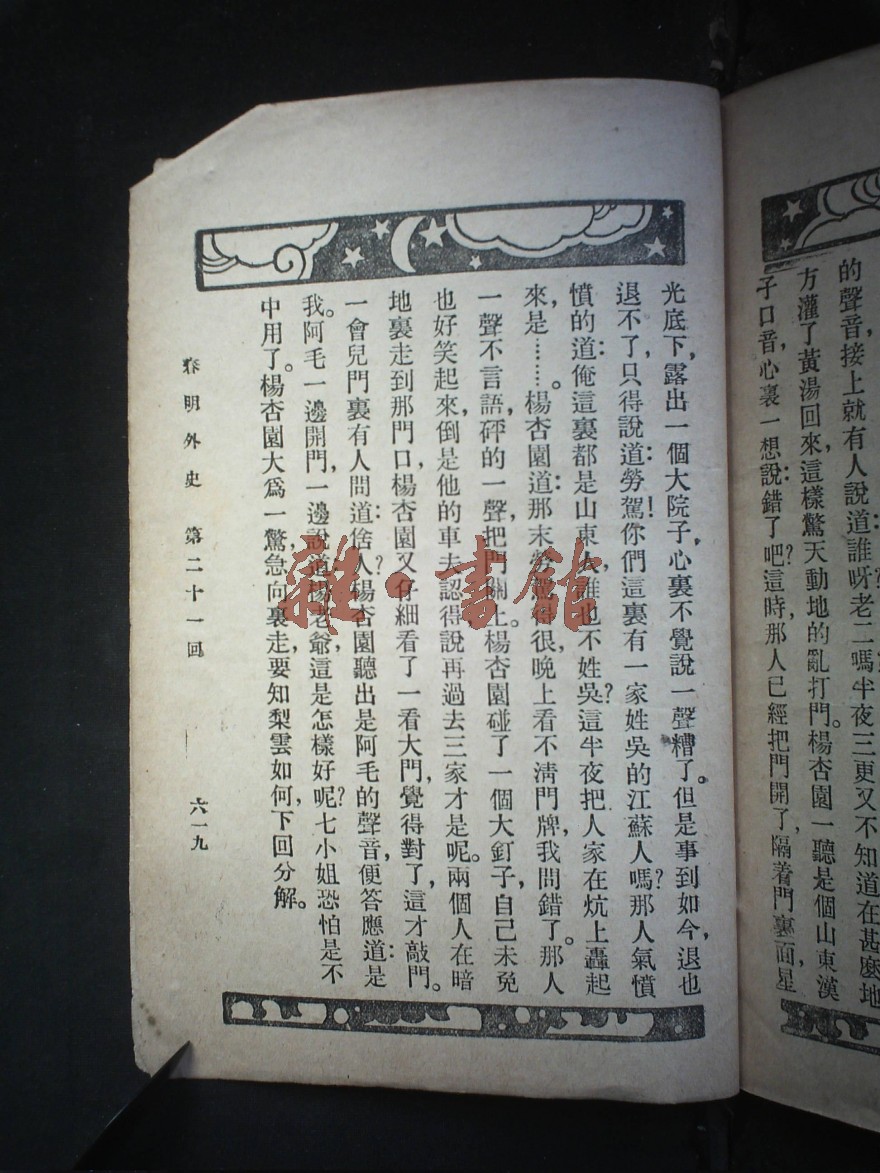 的聲音接上就有人說道誰呀老二嗎半夜三更又不知道在甚麼地
方灌了黃湯回來,這樣驚天動地的亂打門。楊杏園一聽是個山東漢
子口音,心裏一想:說錯了吧?這時,那人已經把門開了,隔着門裏面星
光底下,露出一個大院子,心裏不覺說一聲糟了。但是事到如今,退也
退不了,只得說道:勞駕!你們這裏有一家姓吳的江蘇人嗎?那人氣憤
憤的道:俺這裏都是山東人,誰也不姓吳?這半夜把人家在炕上轟起
來,是………。楊杏園道:那末勞駕得很,晚上看不清門牌,我問錯了。那人
一聲不言語,砰的一聲,把門關上。楊杏園碰了一個大釘子,自己未免
也好笑起來,倒是他的車夫認得,說再過去三家才是呢。兩個人在暗
地裏走到那門口,楊杏園又仔細看了一看大門,覺得對了,這才敲門。
一會兒門裏有人問道:俽人?楊杏園聽出是阿毛的聲音,便答應道:是
我。阿毛一邊開門,一邊說道:楊老爺,這是怎樣好呢?七小姐恐怕是不
中用了。楊杏園大爲一驚,急向裏走,要知梨雲如何,下回分解。
春明外史 第二十一回 六一九
雜·書館